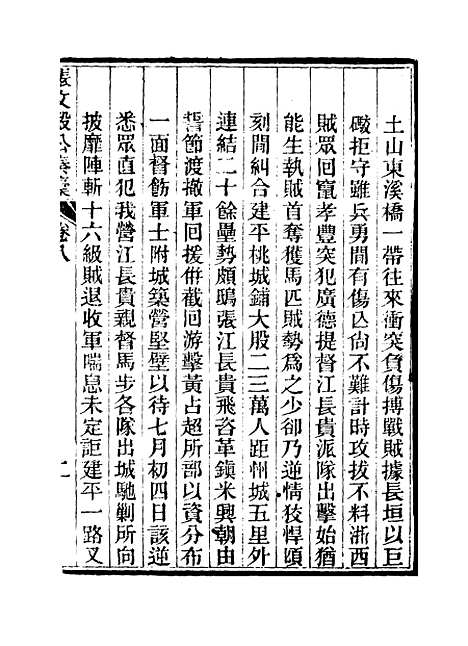 土山東溪橋一帶往來衝突負傷搏戰賊據長垣以巨
礮拒守雖兵勇間有傷亾尙不難計時攻拔不料浙西
賊眾回竄孝豐突犯廣德提督江長貴派隊出擊始猶
能生執賊首奪獲馬匹賊勢爲之少卻乃逆情狡悍頃
刻間糾合建平桃城鋪大股二三萬人距州城五里外
連結二十餘壘勢頗鴟張江長貴飛咨革鎭米興朝由
誓節渡撤軍回援倂截回游擊黃占超所部以資分布
一面督飭軍士附城築營堅壁以待七月初四日該逆
悉眾直犯我營江長貴親督馬步各隊出城馳剿所向
披靡陣斬十六級賊退收軍喘息未定詎建平一路又
張文毅公奏稾
卷八
二